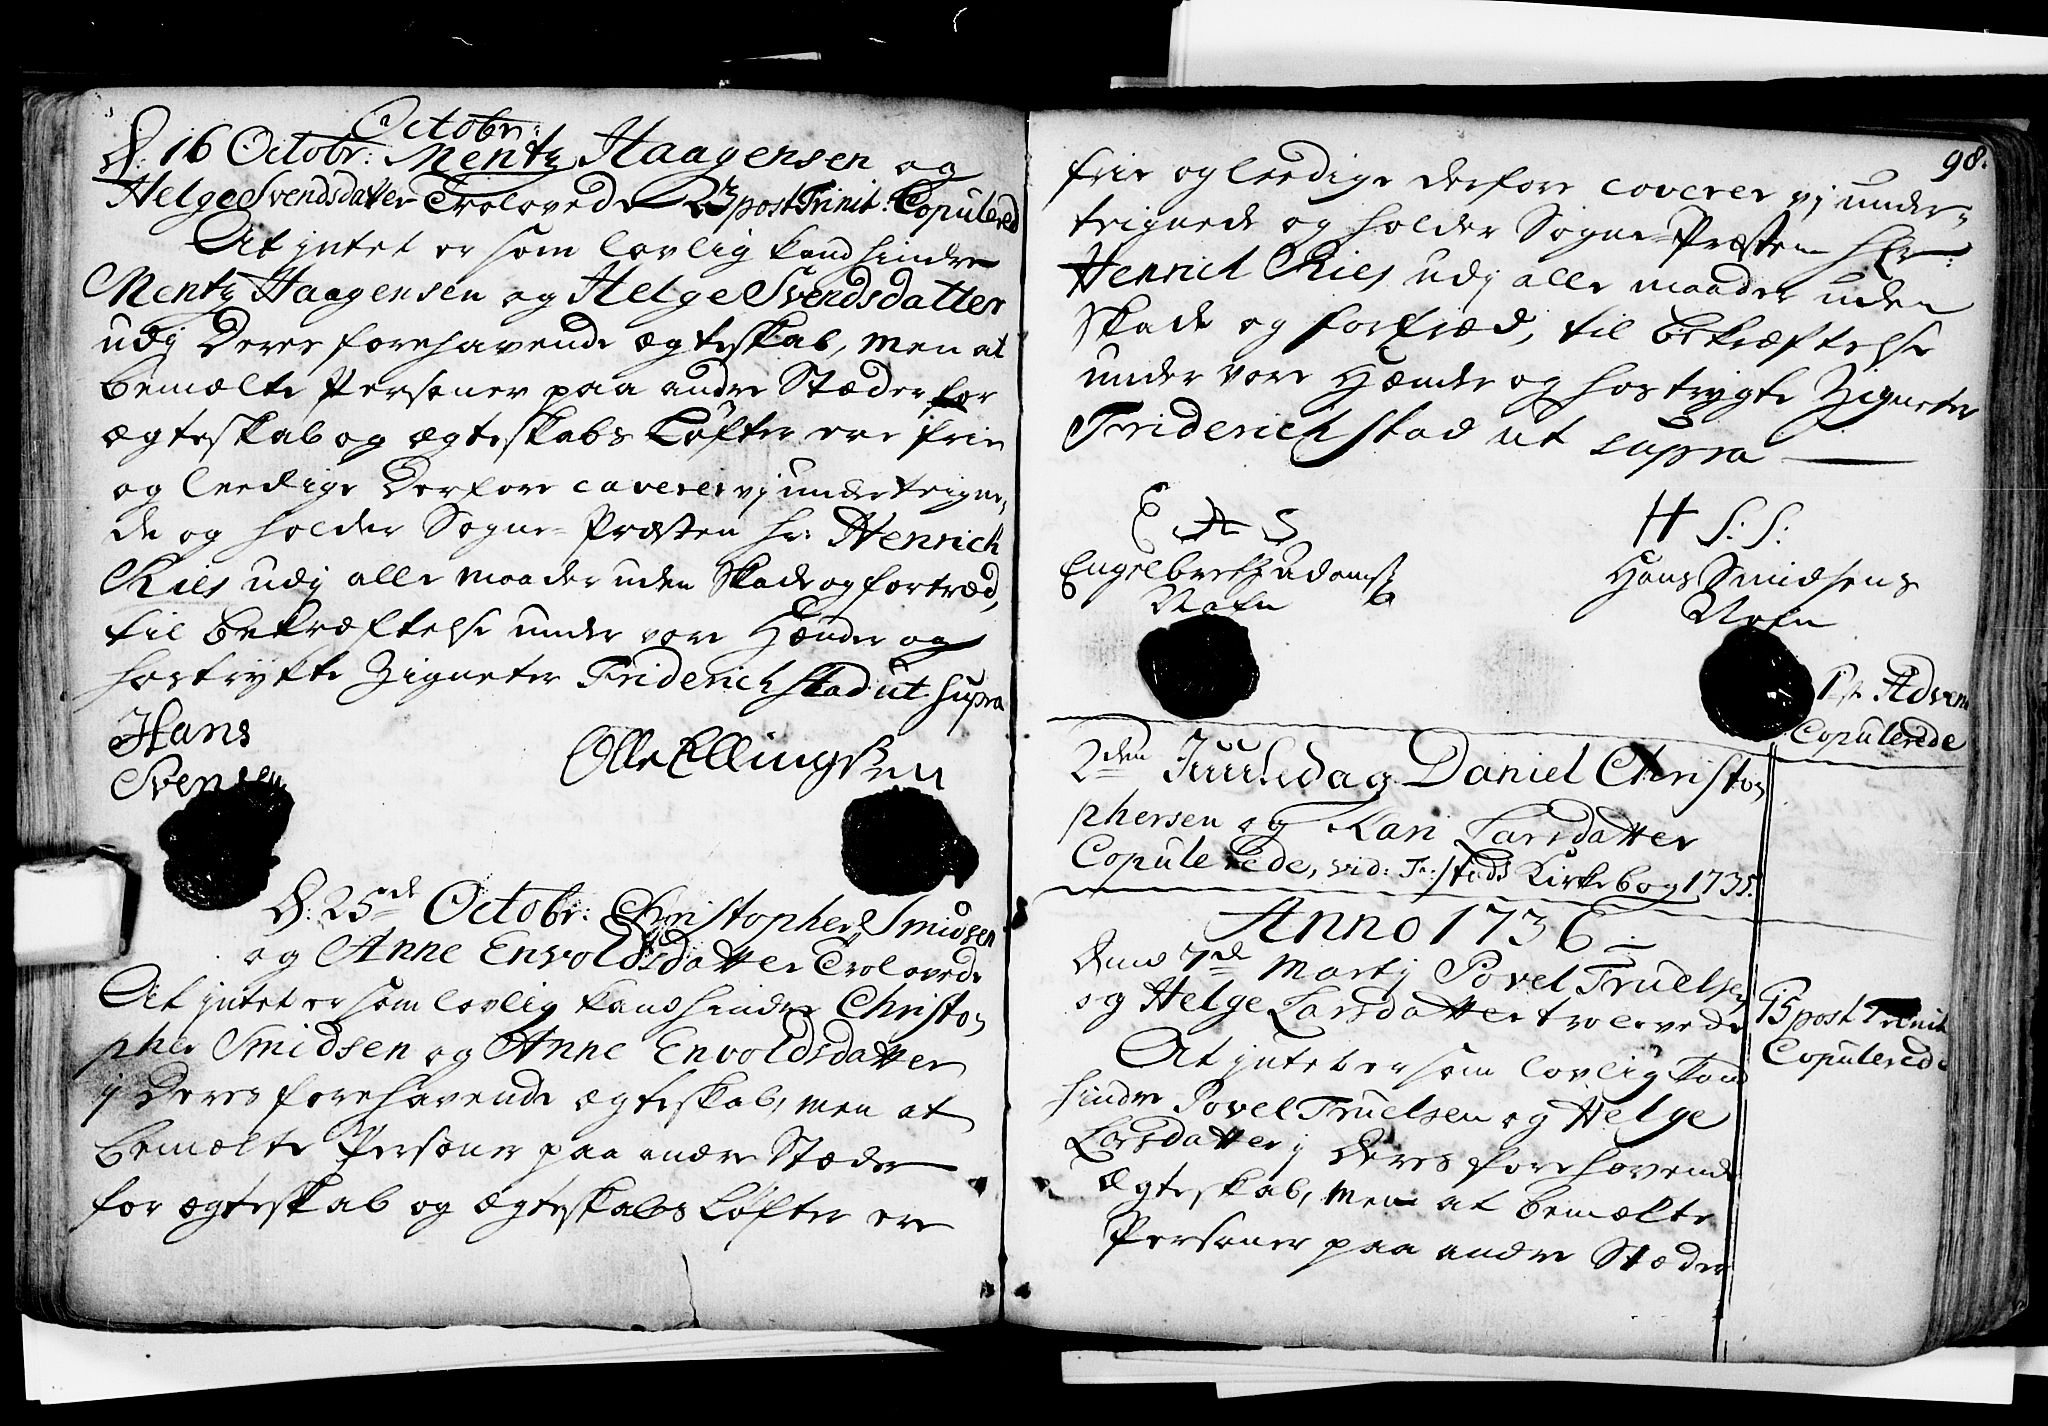 Octobr:
D: 16 Octobr: Mentz Haagensen og
Helge Svendsdatter Trolovede 23 post Trinit: Copulered
At intet er som lovlig kand hindre
Mentz Haagensen og Helge Svendsdatter
udj Deres forehavende Ægteskab, men at
bemælte Personer paa andre Stæder for
ægteskab og ægteskabs Løfter ere frie
og leedige Derfore caverer vj undertegne,
de og holder Sogne-Præsten hr: Henrich
Ries udj alle maader uden Skade og fortræd,
til bekræftelse under vore Hænder og
hostrykte Zigneter Friderichstad ut supra
Hans
Svensen
Olle Ellingsen
D: 25de Octobr: Christopher Smidsen
og Anne Envoldsdatter Trolovede
At intet er som lovlig kand hindre Christo,
pher Smidsen og Anne Envoldsdatter
j Deres forehavende ægteskab, men at
bemælte Personer paa andre Stæder
for ægteskab og ægteskabs Løfter ere
98.
frie og leedige derfore caverer vj under,
teignede og holder Sogne-Præsten Hr:
Henrich Ries udj alle maader uden
Skade og fortræd, til bekræftelse
under vore Hænder og hostrygte Zigneter
Friderichstad ut supra
E A S
Engelbret Adams
Nafn
H S: S:
Hans Smidsens
Nafn
1st Advent
Copulerede
2den Juuledag Daniel Christo,
phersen og Kari Larsdatter
Copulerede, vid: Fr:stads Kirkebog 1735.
Anno 1736
Dend 7de Martij Povel Truelsen
og Helge Larsdatter trolovede
15 post Trinit
Copulerede
At intet er som lovlig kand
hindre Povel Truelsen og Helge
Larsdatter j Deres forehavende
Ægteskab, men at bemælte
Personer paa andre Stæder